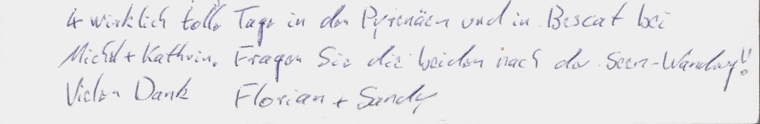 4 wirklich tolle Tage in den Pyrenäen und in Bescat bei
Michel + Kathrin. Fragen Sie die beiden nach der Seen-Wandrung!!
Vielen Dank Florian + Sandy